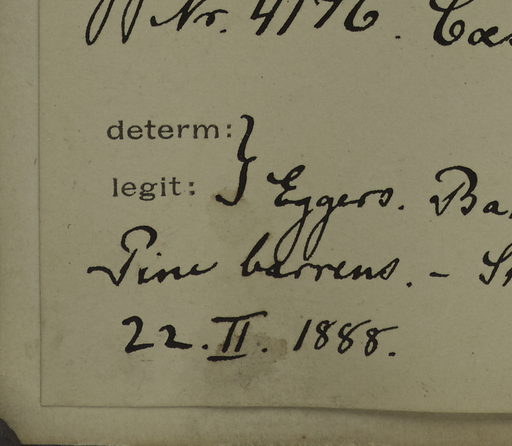 Nr. 4176.
determ:
legit: } Eggers.
Pine barrens. -
22. II. 1888.